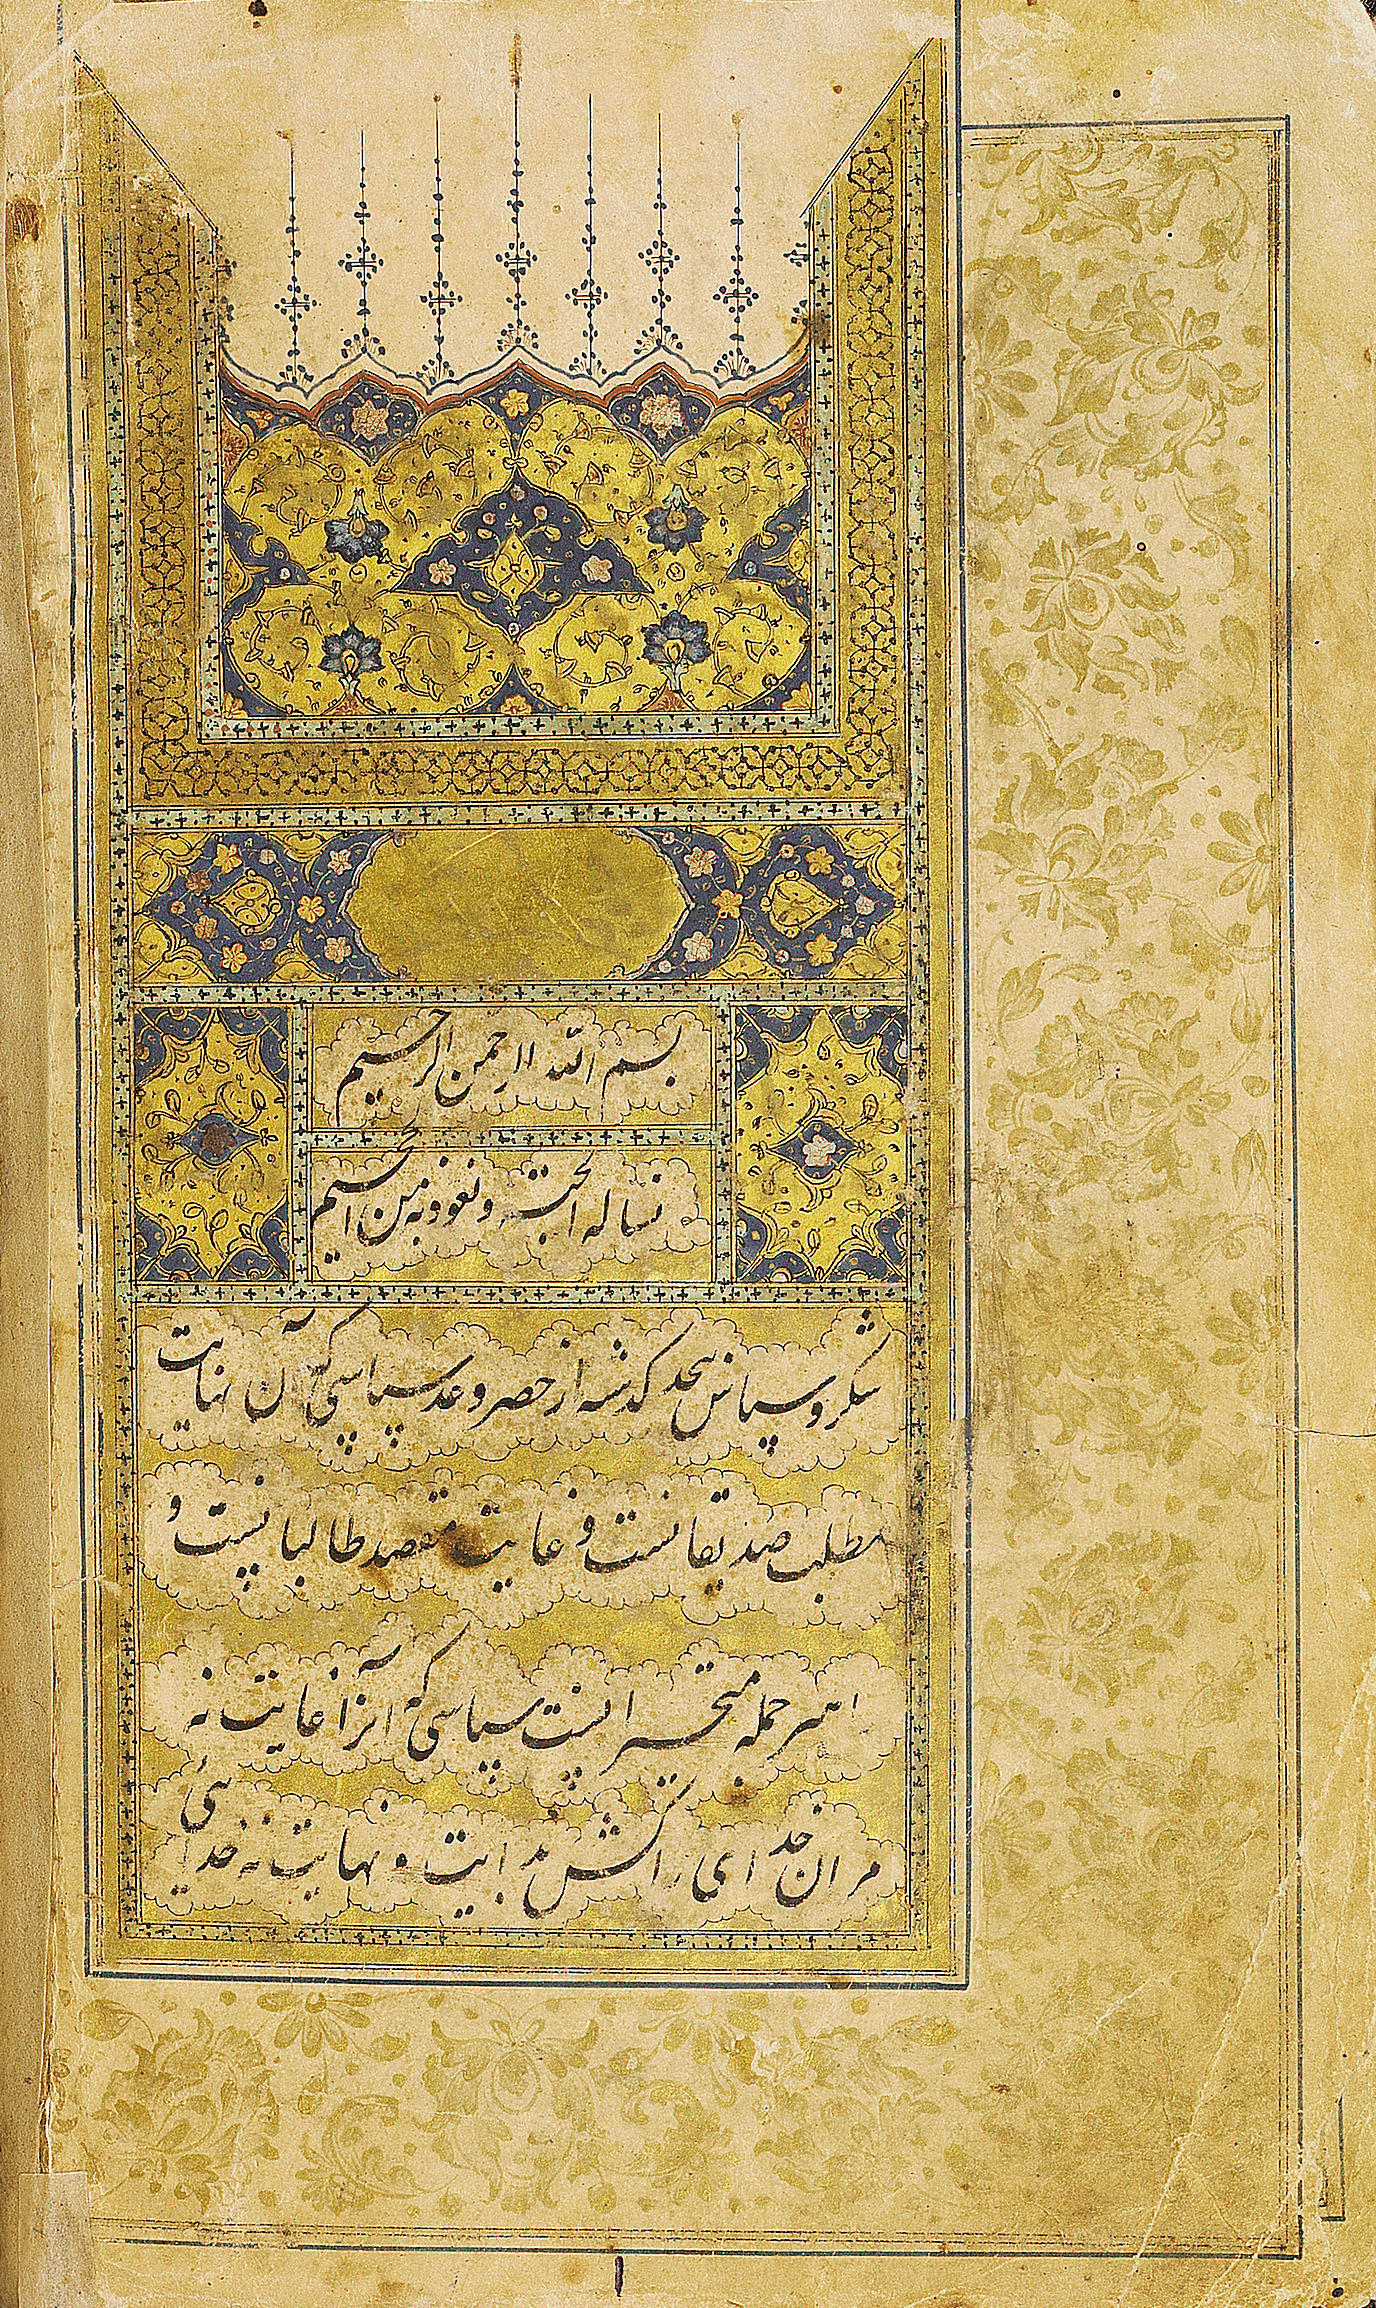 بسم الله الرحمن الرحیم
نساله الجنة و نعوذ به من الجحیم
شکر و سپاس بیحد که گذشته از حصر و عد سپاسی که آن نهایت
مطلب صدیقانست و غایت مقصد طالبانست و
امیر جمله متحیرانست سپاسی که آنرا غایت نه
مر ان خدای را کش بدایت و نهایت نه خدایی